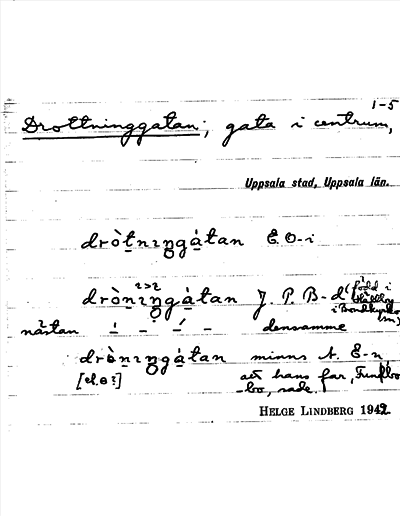 1-5
Drottninggatan; gata i centrum,
Uppsala stad, Uppsala län.
dròtnıŋgátan E. O-i
drònıŋgátan J. P. B-d (född i
i Bondkyrko
nästan densamme
drònıŋgàtan minns A. E-n,
[el. ɵ?] att hans far, Funbo-
bo, sade.
HELGE LINDBERG 1942.